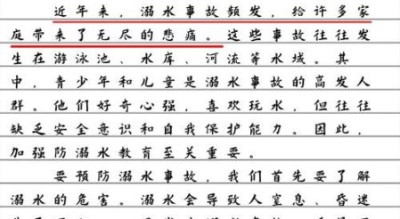 近年来，溺水事故频发，给许多家
庭带来了无尽的悲痛。这些事故往往发
生在游泳池、水库、河流等水域。其
中，青少年和儿童是溺水事故的高发人
群。他们好奇心强，喜欢玩水，但往往
缺乏安全意识和自我保护能力。因此，
加强防溺水教育至关重要。
要预防溺水事故，我们首先要了解
溺水的危害。溺水会导致人窒息、昏迷